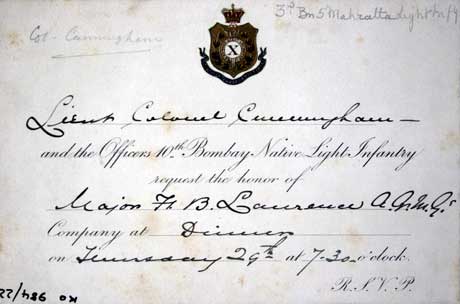 3rd Bn 5 Mahratta Light Inf/y
Col. Cunningham
X
Lieut Colonel Cunningham
and the Officers 10th Bombay Native Light Infantry
request the honor of
Major H. B. Lawrence
Company at Dinner
on Thursday 29th at 7.30 o'clock.
R.S.V.P.